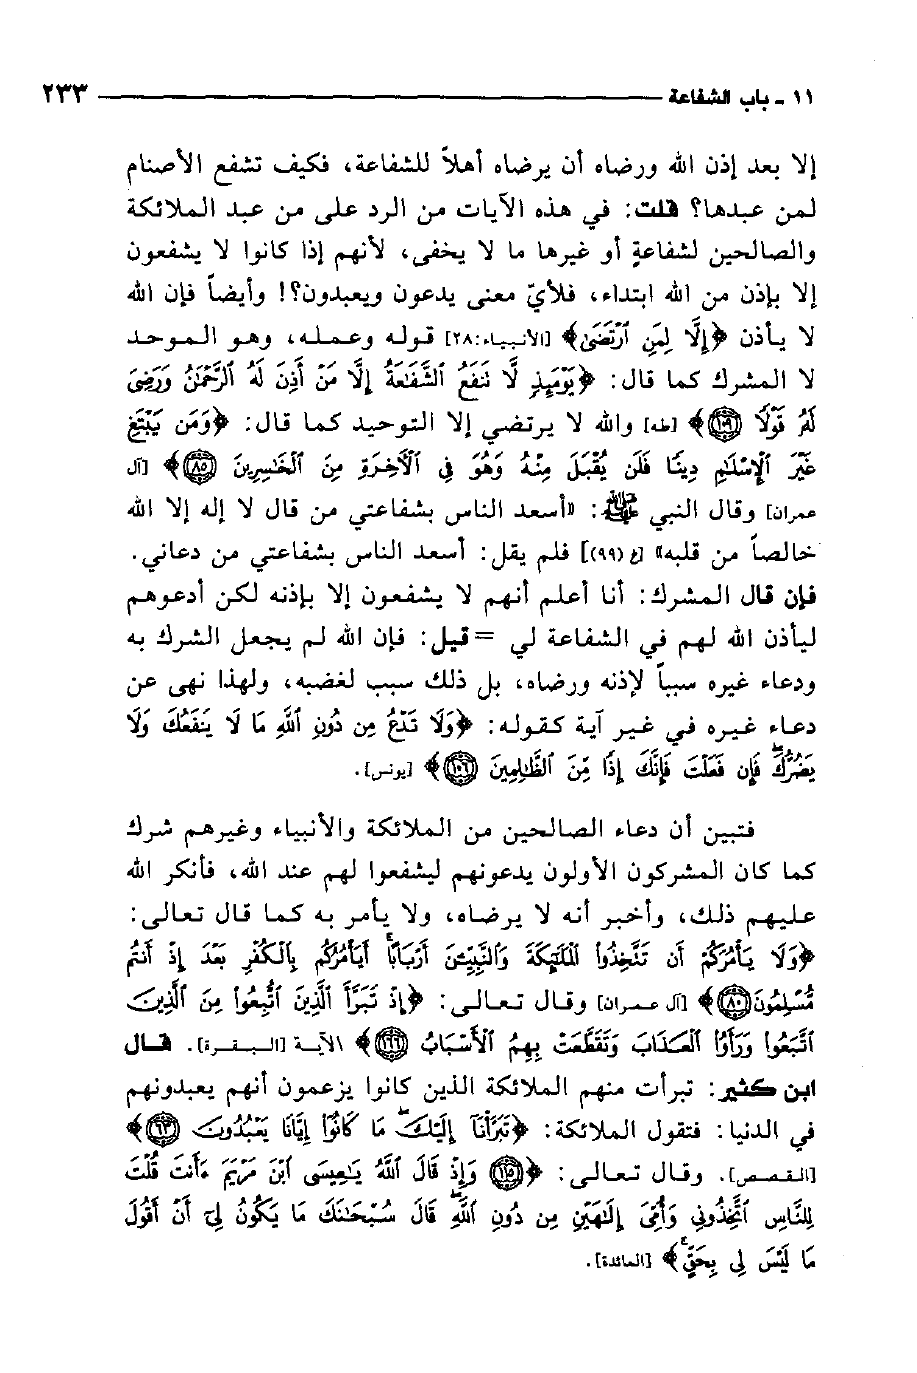 ١١ - باب الشفاعة ٢٣٣
إلا بعد إذن الله ورضاه أن يرضاه أهلاً للشفاعة، فكيف تشفع الأصنام
لمن عبدها؟ قلت: في هذه الآيات من الرد على من عبد الملائكة
والصالحين لشفاعةٍ أو غيرها ما لا يخفى، لأنهم إذا كانوا لا يشفعون
إلا بإذن من الله ابتداء، فلأيّ معنى يدعون ويعبدون؟! وأيضاً فإن الله
لا يأذن ﴿إِلَّا لِمَنِ ٱرْتَضَىٰ﴾ [الأنبياء:٢٨] قوله وعمله، وهو الموحد
لا المشرك كما قال: ﴿يَوْمَئِذٍ لَّا تَنفَعُ ٱلشَّفَٰعَةُ إِلَّا مَنْ أَذِنَ لَهُ ٱلرَّحْمَٰنُ وَرَضِىَ
لَهُۥ قَوْلًا ﴿١٠٩﴾﴾ [طه] والله لا يرتضي إلا التوحيد كما قال: ﴿وَمَن يَبْتَغِ
غَيْرَ ٱلْإِسْلَٰمِ دِينًا فَلَن يُقْبَلَ مِنْهُ وَهُوَ فِى ٱلْأَخِرَةِ مِنَ ٱلْخَٰسِرِينَ ﴿٨٥﴾﴾ [آل
عمران] وقال النبي ﷺ: «أسعد الناس بشفاعتي من قال لا إله إلا الله
خالصاً من قلبه» [خ (٩٩)] فلم يقل: أسعد الناس بشفاعتي من دعاني.
فإن قال المشرك: أنا أعلم أنهم لا يشفعون إلا بإذنه لكن أدعوهم
ليأذن الله لهم في الشفاعة لي = قيل: فإن الله لم يجعل الشرك به
ودعاء غيره سبباً لإذنه ورضاه، بل ذلك سبب لغضبه، ولهذا نهى عن
دعاء غيره في غير آية كقوله: ﴿وَلَا تَدْعُ مِن دُونِ ٱللَّهِ مَا لَا يَنفَعُكَ وَلَا
يَضُرُّكَ ۖ فَإِن فَعَلْتَ فَإِنَّكَ إِذًا مِّنَ ٱلظَّٰلِمِينَ ﴿١٠٦﴾﴾ [يونس].
فتبين أن دعاء الصالحين من الملائكة والأنبياء وغيرهم شرك
كما كان المشركون الأولون يدعونهم ليشفعوا لهم عند الله، فأنكر الله
عليهم ذلك، وأخبر أنه لا يرضاه، ولا يأمر به كما قال تعالى:
﴿وَلَا يَأْمُرَكُمْ أَن تَتَّخِذُوا۟ ٱلْمَلَٰٓئِكَةَ وَٱلنَّبِيِّـۧنَ أَرْبَابًا ۗ أَيَأْمُرُكُم بِٱلْكُفْرِ بَعْدَ إِذْ أَنتُم
مُّسْلِمُونَ ﴿٨٠﴾﴾ [آل عمران] وقال تعالى: ﴿إِذْ تَبَرَّأَ ٱلَّذِينَ ٱتُّبِعُوا۟ مِنَ ٱلَّذِينَ
ٱتَّبَعُوا۟ وَرَأَوُا۟ ٱلْعَذَابَ وَتَقَطَّعَتْ بِهِمُ ٱلْأَسْبَابُ ﴿١٦٦﴾﴾ الآية [البقرة]. قال
ابن كثير: تبرأت منهم الملائكة الذين كانوا يزعمون أنهم يعبدونهم
في الدنيا: فتقول الملائكة: ﴿تَبَرَّأْنَآ إِلَيْكَ ۖ مَا كَانُوٓا۟ إِيَّانَا يَعْبُدُونَ ﴿٦٣﴾﴾
[القصص]. وقال تعالى: ﴿﴿١١٥﴾ وَإِذْ قَالَ ٱللَّهُ يَٰعِيسَى ٱبْنَ مَرْيَمَ ءَأَنتَ قُلْتَ
لِلنَّاسِ ٱتَّخِذُونِى وَأُمِّىَ إِلَٰهَيْنِ مِن دُونِ ٱللَّهِ ۖ قَالَ سُبْحَٰنَكَ مَا يَكُونُ لِىٓ أَنْ أَقُولَ
مَا لَيْسَ لِى بِحَقٍّ ۚ﴾ [المائدة].